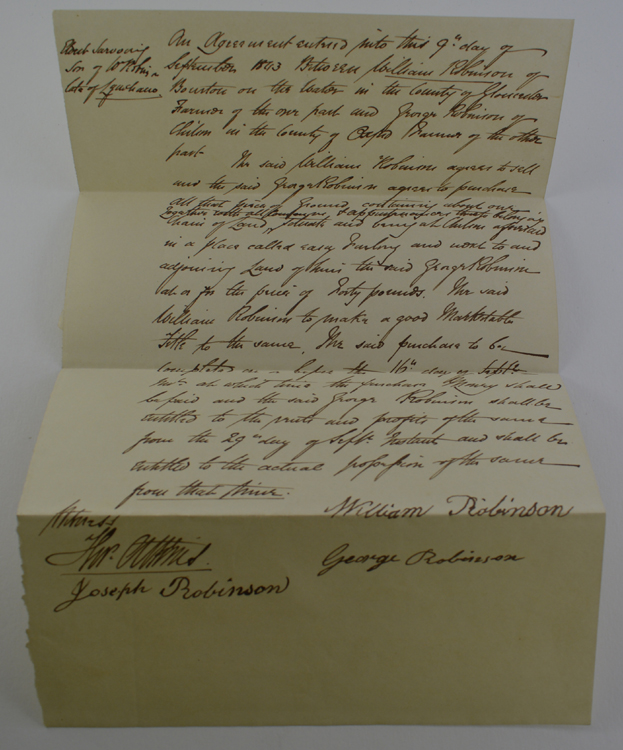 Eldest Surviving
Son of Wm Robin
late of
An Agreement entered into this 9th day of
September 1843 Between William Robinson of
Bourton on the Water in the County of Gloucester
Farmer of the one part and George Robinson of
in the County of Farmer of the other
part
The said William Robinson agrees to sell
and the said George Robinson agrees to purchase
all that piece of Ground, containing about one
together with all & appurtenances thereto belonging
of Land, situate and being at aforesaid
in a place called Furlong and next to and
adjoining Land of him the said George Robinson
at or for the price of Forty pounds. The said
William Robinson to make a good Marketable
Title to the same. The said purchase to be
completed on or before the 16th day of Septr
at which time the purchase Money shall
be paid and the said George Robinson shall be
entitled to the rents and profits of the same
from the 29th day of Septr Instant and shall be
entitled to the actual possession of the same
from that time.
Witness
William Robinson
Thos.
George Robinson
Joseph Robinson